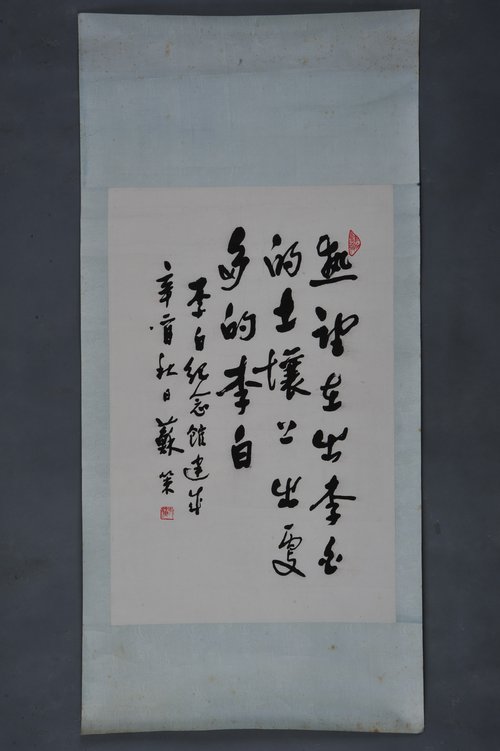 热望在出李白
的土壤上出更
多的李白
李白纪念館建成
辛酉秋日蘇策